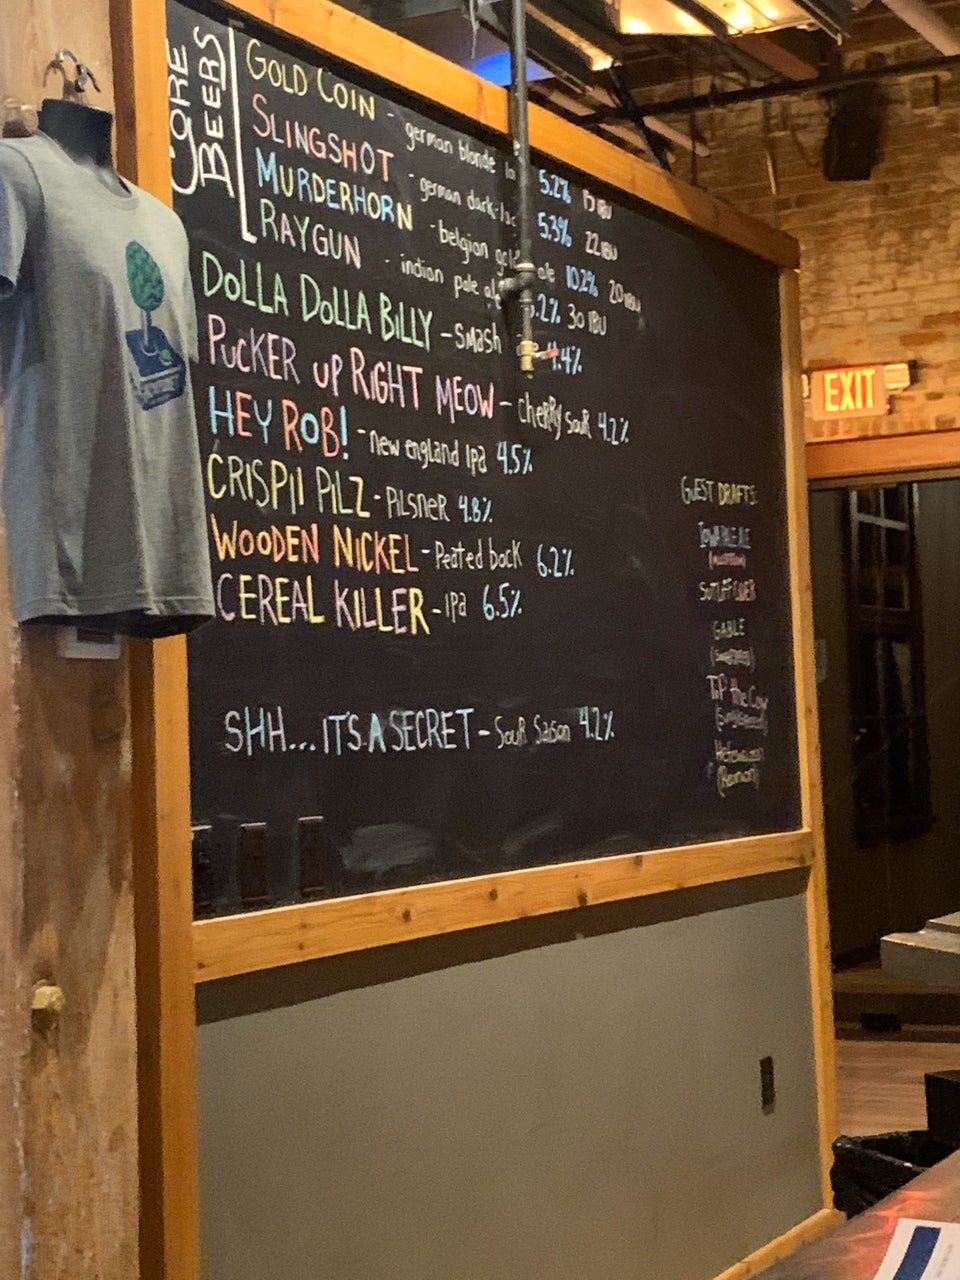 CORE BEERS
GOLD COIN - german blonde 5.2% 15 IBU
SLINGSHOT - german dark 5.3% 22 IBU
MURDERHORN - belgian gold ale 10.2% 20 IBU
RAYGUN - indian pale 30 IBU
DOLLA DOLLA BILLY - SMASH 4.4%
PUCKER UP RIGHT MEOW - CHERRY SOUR 4.2%
HEY ROB! - new england Ipa 4.5%
CRISPII PILZ - PILSNER 4.8%
WOODEN NICKEL - Peated bock 6.2%
CEREAL KILLER - Ipa 6.5%
SHH... IT'S A SECRET - SOUR SAISON 4.2%
GUEST DRAFTS:
IOWA PALE ALE
SUTLIFF CIDER
GABLE
TIP the COW
EXIT